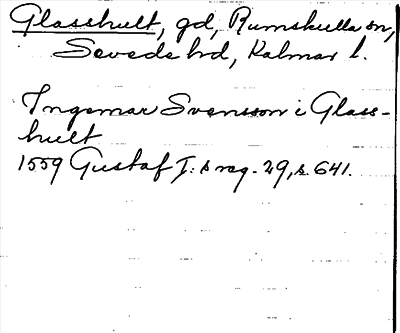 Glasshult, gd, Rumskulla sn,
Sevede hd, Kalmar l.
Ingemar Svensson i Glass-
hult
1559 Gustaf I:s reg. 29, s. 641.